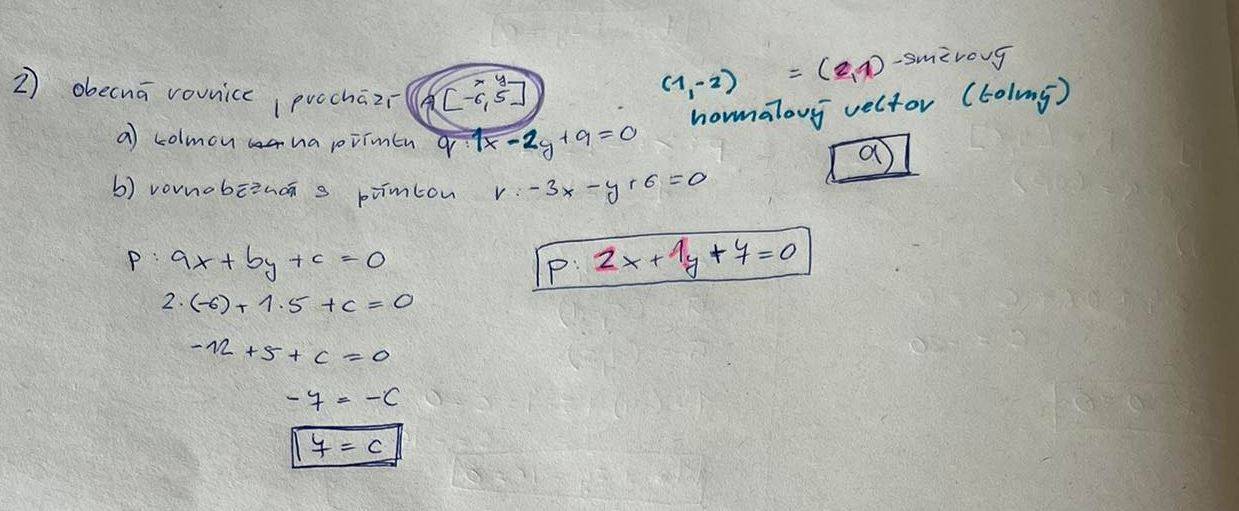 2) obecná rovnice, prochází A[-6, 5]
x y
(1,-2) = (2,1) -směrový
normálový vector (kolmý)
a) kolmou na přímku q: 1x-2y+9=0
a)
b) rovnoběžná s přímkou r: -3x-y+6=0
p: ax+by+c=0
p: 2x+1y+7=0
2·(-6)+1·5+c=0
-12+5+c=0
-7=-c
7=c